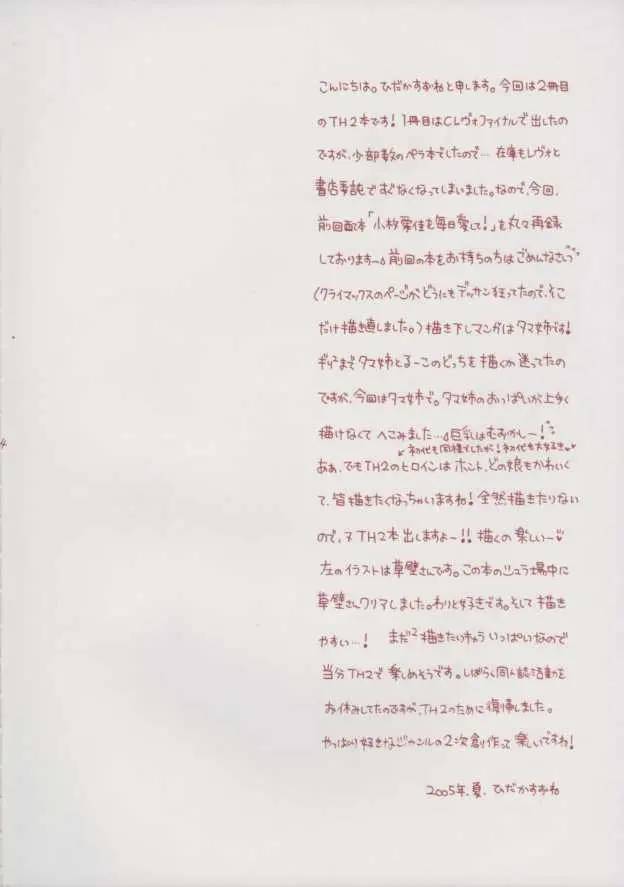 こんにちは。ひだかすずねと申します。今回は2冊目
のTH2本です!1冊目はCレヴォファイナルで出したの
ですが、少部数のペラ本でしたので… 在庫もレヴォと
書店委託ですぐなくなってしまいました。なので、今回、
前回配本「小牧愛佳を毎日愛して!」を丸々再録
しております〜。前回の本をお持ちの方はごめんなさいっ
(クライマックスのページがどうにもデッサン狂ってたので、そこ
だけ描き直しました。)描き下しマンガはタマ姉です!
ギリ²までタマ姉とるーこのどっちを描くか迷ってたの
ですが、今回はタマ姉で。タマ姉のおっぱいが上手く
描けなくてへこみました…。巨乳はむずかしー!
↙初代も同様でしたが!初代も大好き♥
ああ、でもTH2のヒロインはホント、どの娘もかわいく
て、皆描きたくなっちゃいますね!全然描きたりない
ので、又TH2本出しますよ〜!!描くの楽しい〜♥
左のイラストは草壁さんです。この本のシュラ場中に
草壁さんクリアしました。わりと好きです。そして描き
やすい…! まだ²描きたいキャラいっぱいなので
当分TH2で楽しめそうです。しばらく同人誌活動を
お休みしてたのですが、TH2のために復帰しました。
やっぱり好きなジャンルの2次創作って楽しいですね!
2005年、夏、ひだかすずね
4